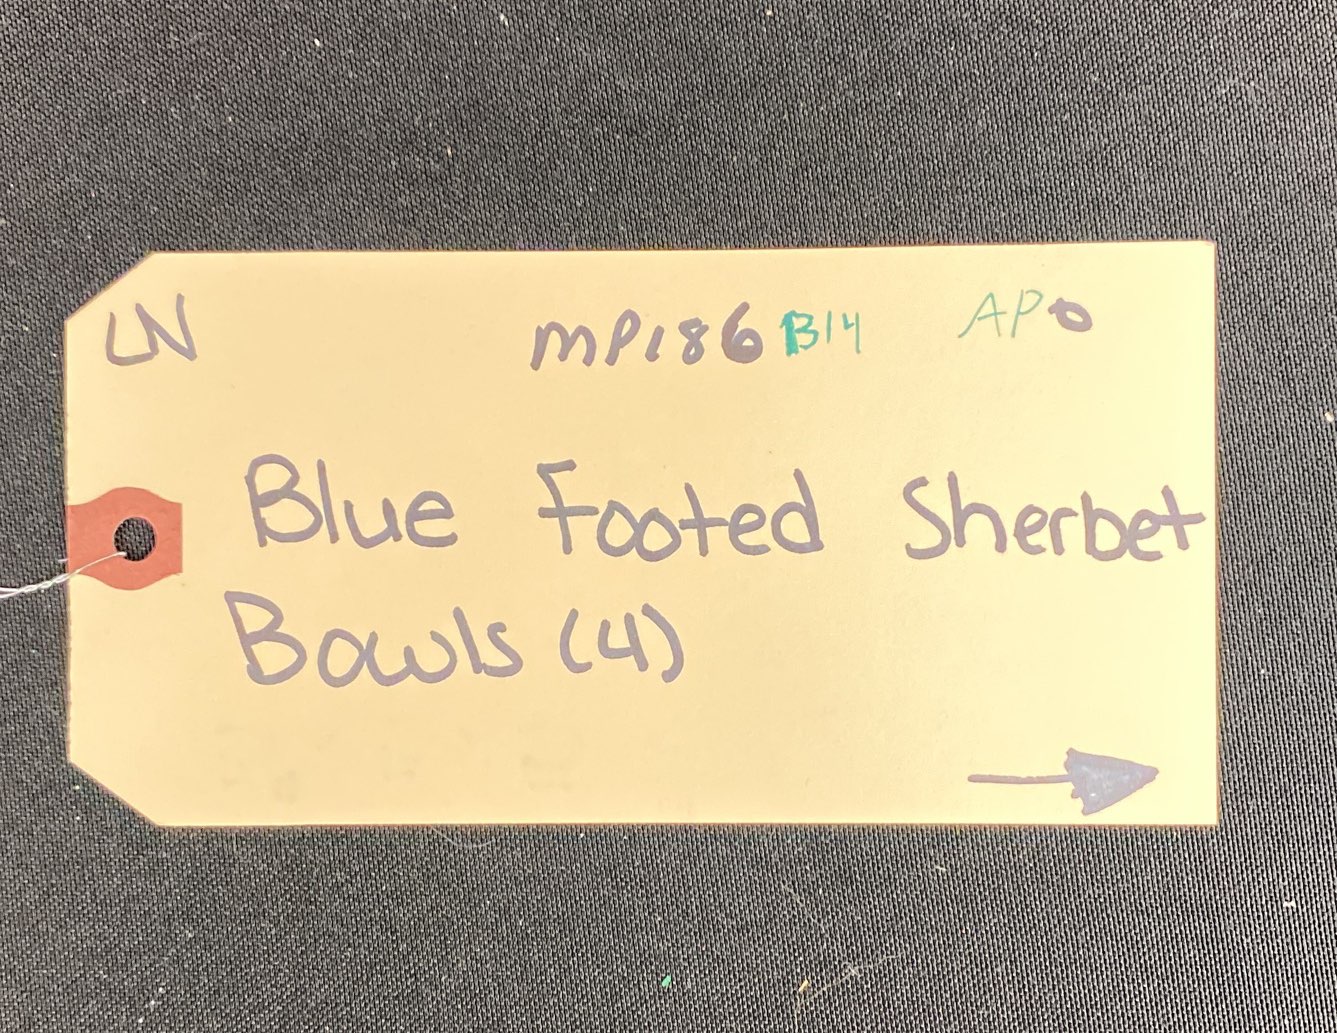 LN MP186 B14 APO
Blue Footed Sherbet
Bowls (4)